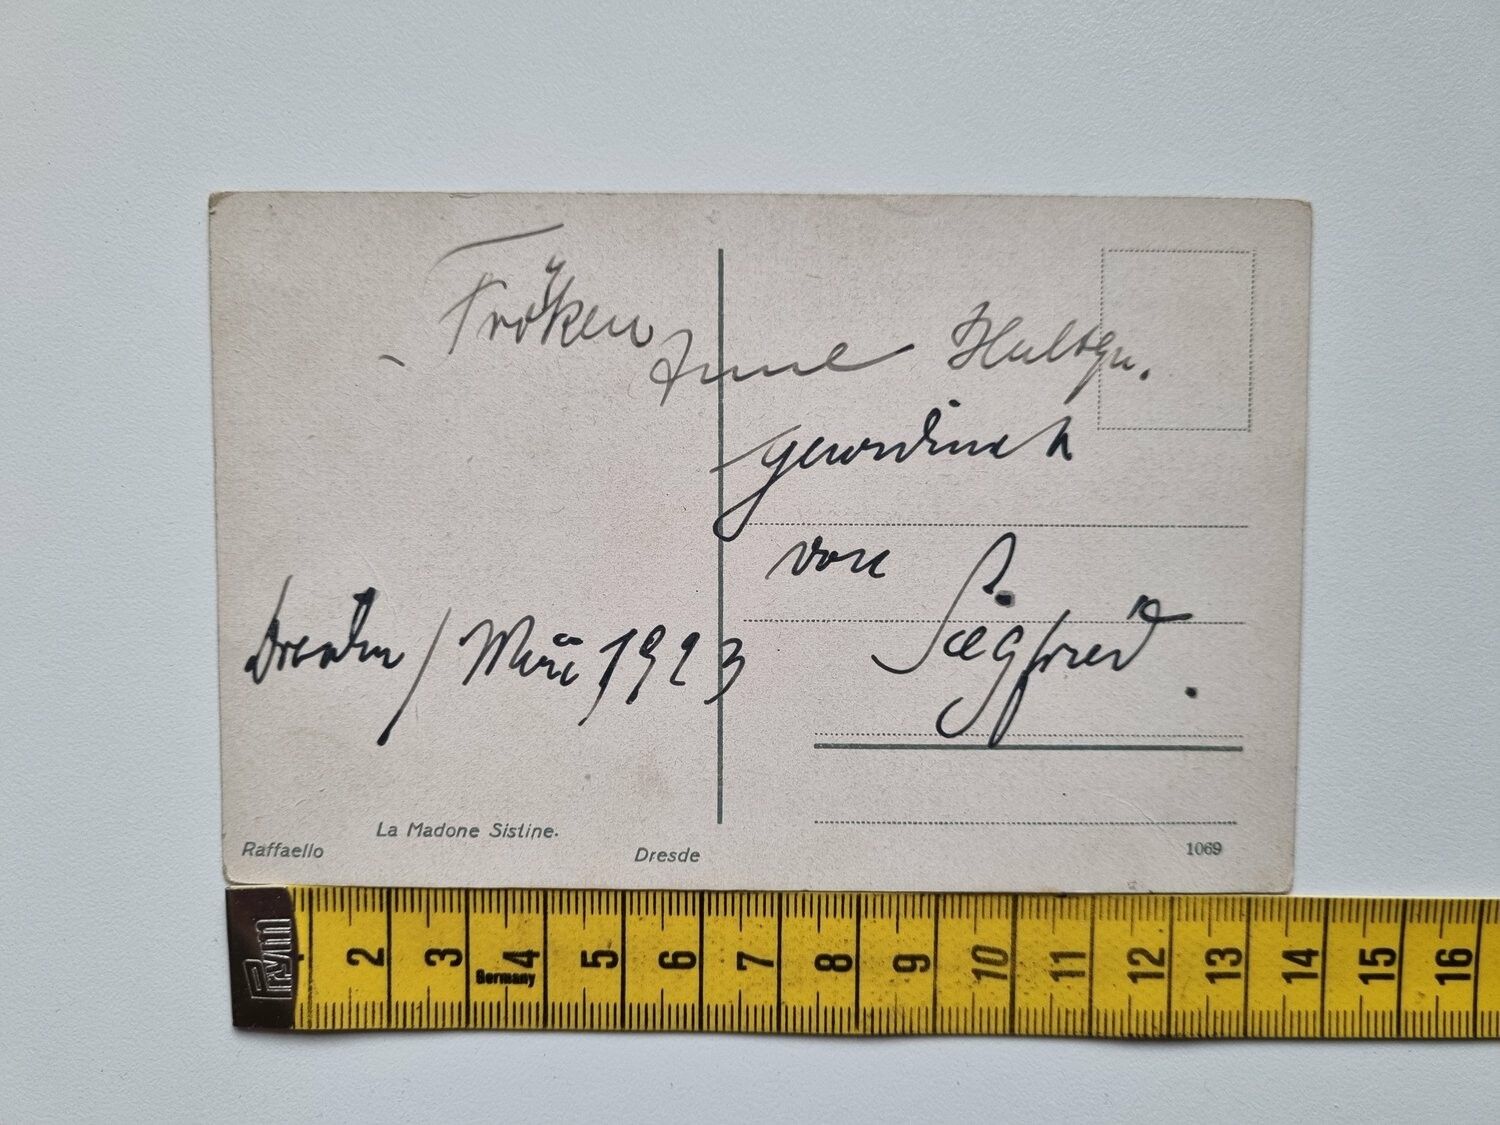 Fröken Anne
gewidmet
von
Siegfried.
Dresden / Mai 1923
La Madone Sistine.
Raffaello
Dresde
1069
Prym
Germany
2 3 4 5 6 7 8 9 10 11 12 13 14 15 16